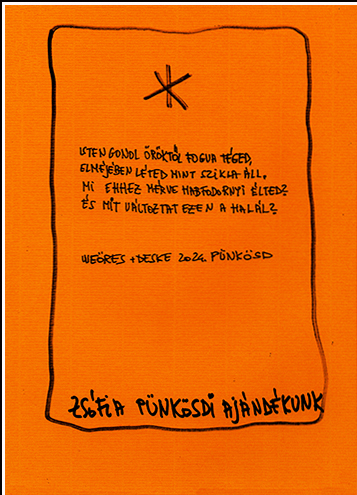 ISTEN GONDOL ÖRÖKTŐL FOGVA TÉGED,
ELMÉJÉBEN LÉTED MINT SZIKLA ÁLL.
MI EHHEZ MÉRVE HABFODORNYI ÉLTED?
ÉS MIT VÁLTOZTAT EZEN A HALÁL?
WEÖRES + DESKE 2024. PÜNKÖSD
ZSÓFIA PÜNKÖSDI AJÁNDÉKUNK